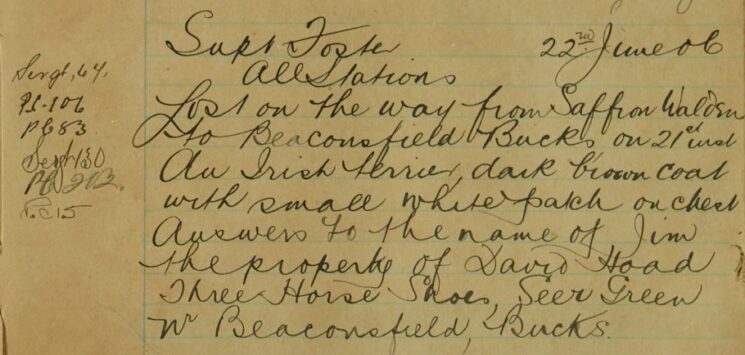 Supt Foster 22nd June 06
All Stations
Lost on the way from Saffron Walden
to Beaconsfield Bucks on 21st inst
An Irish terrier, dark brown coat
with small white patch on chest
Answers to the name of Jim
the property of David Hoad
Three Horse Shoes, Seer Green
Nr Beaconsfield, Bucks.
Sergt, 64.
PC 106
PC 83
Sergt 30
PC 15